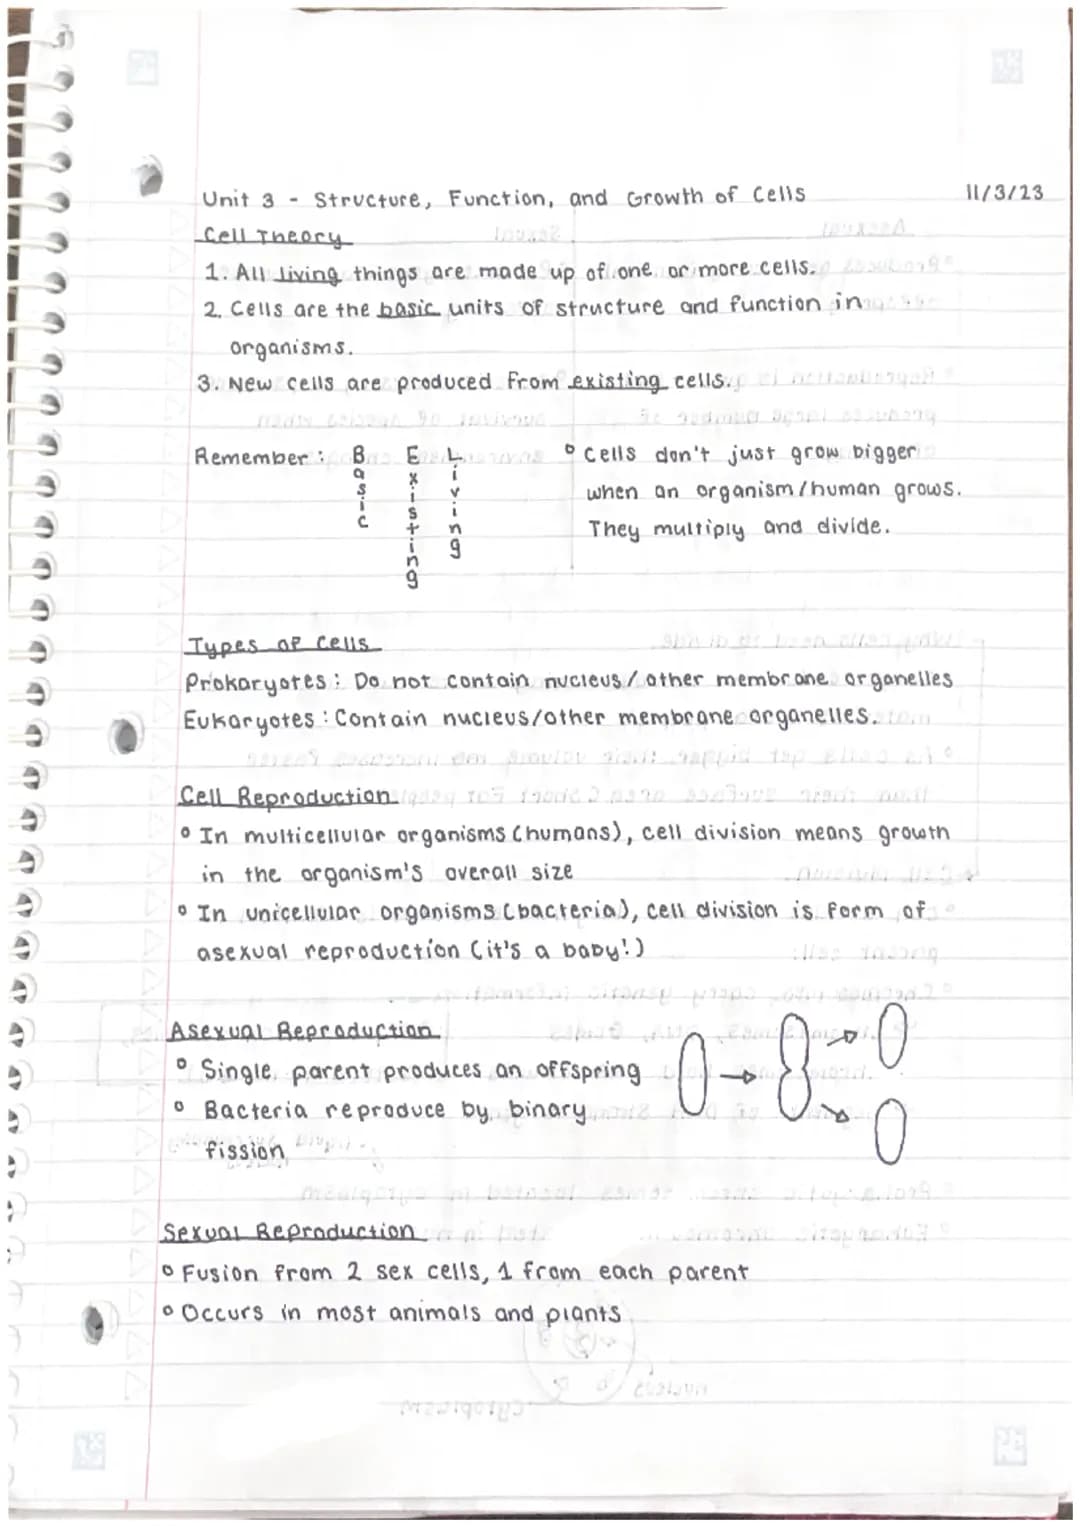 Unit 3 - Structure, Function, and Growth of Cells 11/3/23
Cell Theory
1. All living things are made up of one or more cells.
2. Cells are the basic units of structure and function in
organisms.
3. New cells are produced from existing cells.
Remember: Basic Existing Living
° Cells don't just grow bigger
when an organism/human grows.
They multiply and divide.
Types of Cells
Prokaryotes: Do not contain nucleus/other membrane organelles
Eukaryotes: Contain nucleus/other membrane organelles.
Cell Reproduction
° In multicellular organisms (humans), cell division means growth
in the organism's overall size
° In unicellular organisms (bacteria), cell division is form of
asexual reproduction (it's a baby!)
Asexual Reproduction
° Single parent produces an offspring
° Bacteria reproduce by binary
fission
Sexual Reproduction
° Fusion from 2 sex cells, 1 from each parent
° Occurs in most animals and plants